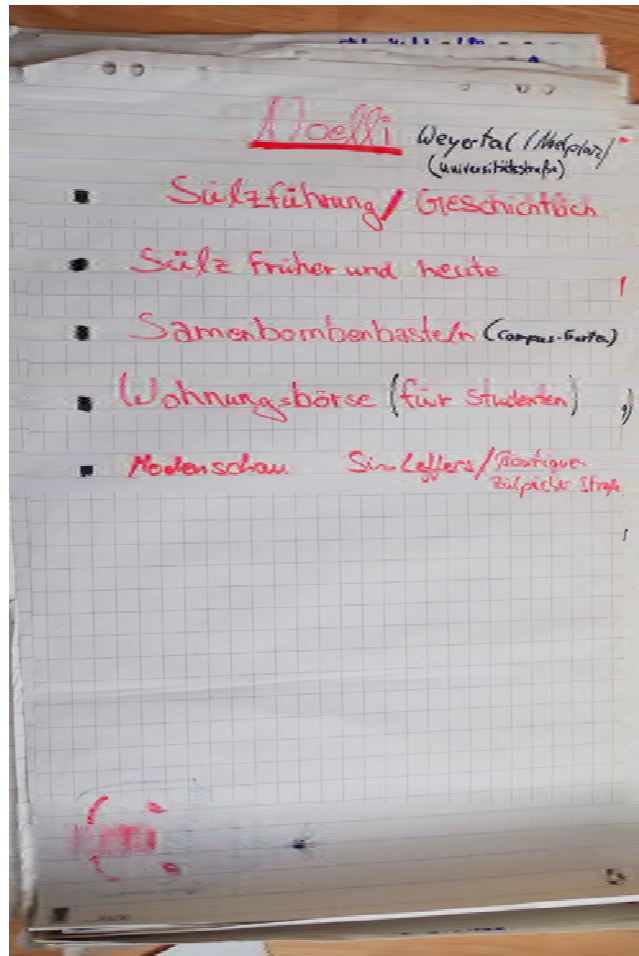 Moelli Weyertal /
(Universitätsstraße)
Sülzführung / Geschichtlich
Sülz früher und heute
Samenbombenbasteln (Campus-Garten)
Wohnungsbörse (für Studenten)
Modenschau Sinn Leffers / Boutiquen
Zülpicher Straße